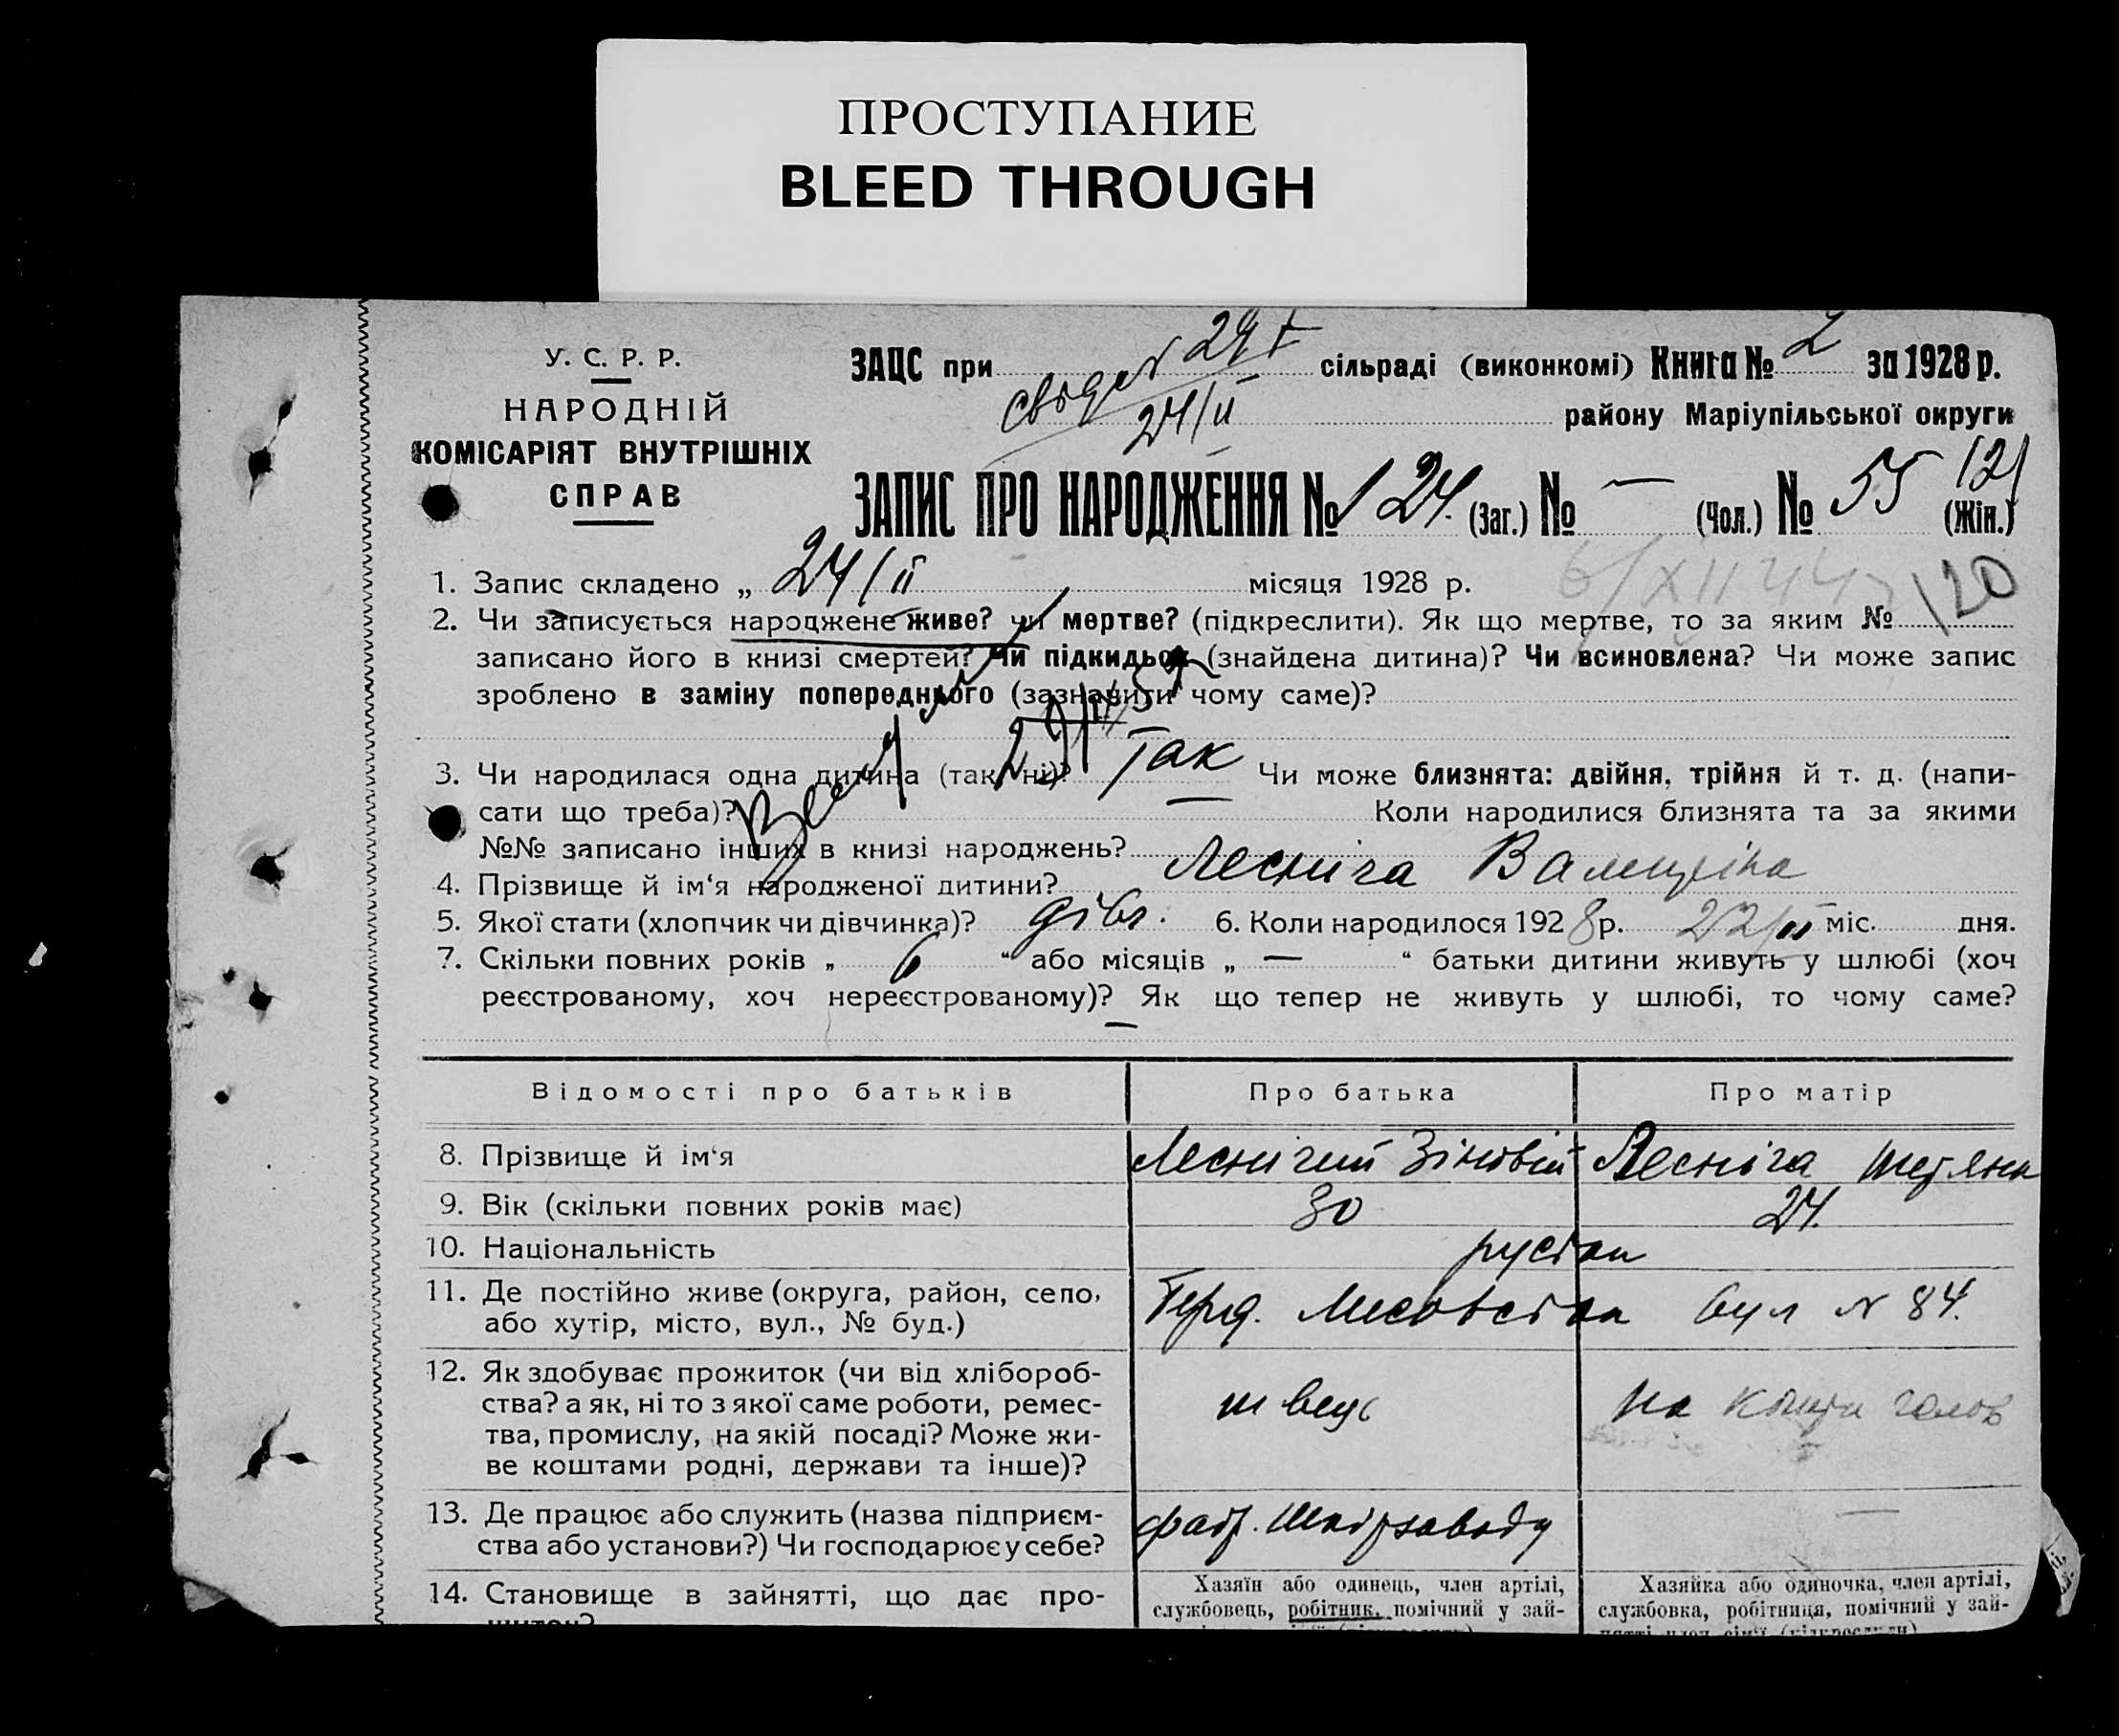 ПРОСТУПАНИЕ
BLEED THROUGH
У. С. Р. Р.
НАРОДНІЙ
КОМІСАРІЯТ ВНУТРІШНІХ
СПРАВ
ЗАЦС при сільраді (виконкомі) Книга № 2 за 1928 р.
24/II району Маріупільської округи
ЗАПИС ПРО НАРОДЖЕННЯ № 124. (Заг.) № — (Чол.) № 55 (Жін.)
121
1. Запис складено „ 24/II місяця 1928 р.
120
2. Чи записується народжене живе? чи мертве? (підкреслити). Як що мертве, то за яким №
записано його в книзі смертей? Чи підкидьок (знайдена дитина)? Чи всиновлена? Чи може запис
зроблено в заміну попереднього (зазначити чому саме)?
3. Чи народилася одна дитина (так, ні)? Так Чи може близнята: двійня, трійня й т. д. (напи-
сати що треба)? — Коли народилися близнята та за якими
№№ записано інших в книзі народжень?
4. Прізвище й ім‘я народженої дитини? Лесніча Валентіна
5. Якої стати (хлопчик чи дівчинка)? дівч. 6. Коли народилося 1928 р. 22/II міс. дня.
7. Скільки повних років „ 6 “ або місяців „ — “ батьки дитини живуть у шлюбі (хоч
реєстрованому, хоч нереєстрованому)? Як що тепер не живуть у шлюбі, то чому саме?
—
Відомості про батьків Про батька Про матір
8. Прізвище й ім‘я Леснічий Зіновій Лесніча Тетяна
9. Вік (скільки повних років має) 30 24.
10. Національність
11. Де постійно живе (округа, район, село,
або хутір, місто, вул., № буд.) вул № 84.
12. Як здобуває прожиток (чи від хлібороб-
ства? а як, ні то з якої саме роботи, ремес-
тва, промислу, на якій посаді? Може жи-
ве коштами родні, держави та інше)? швець на кошти голов
13. Де працює або служить (назва підприєм-
ства або установи?) Чи господарює у себе? Шкірзаводу —
14. Становище в зайнятті, що дає про-
Хазяїн або одинець, член артілі,
службовець, робітник, помічний у зай-
Хазяйка або одиночка, член артілі,
службовка, робітниця, помічний у зай-